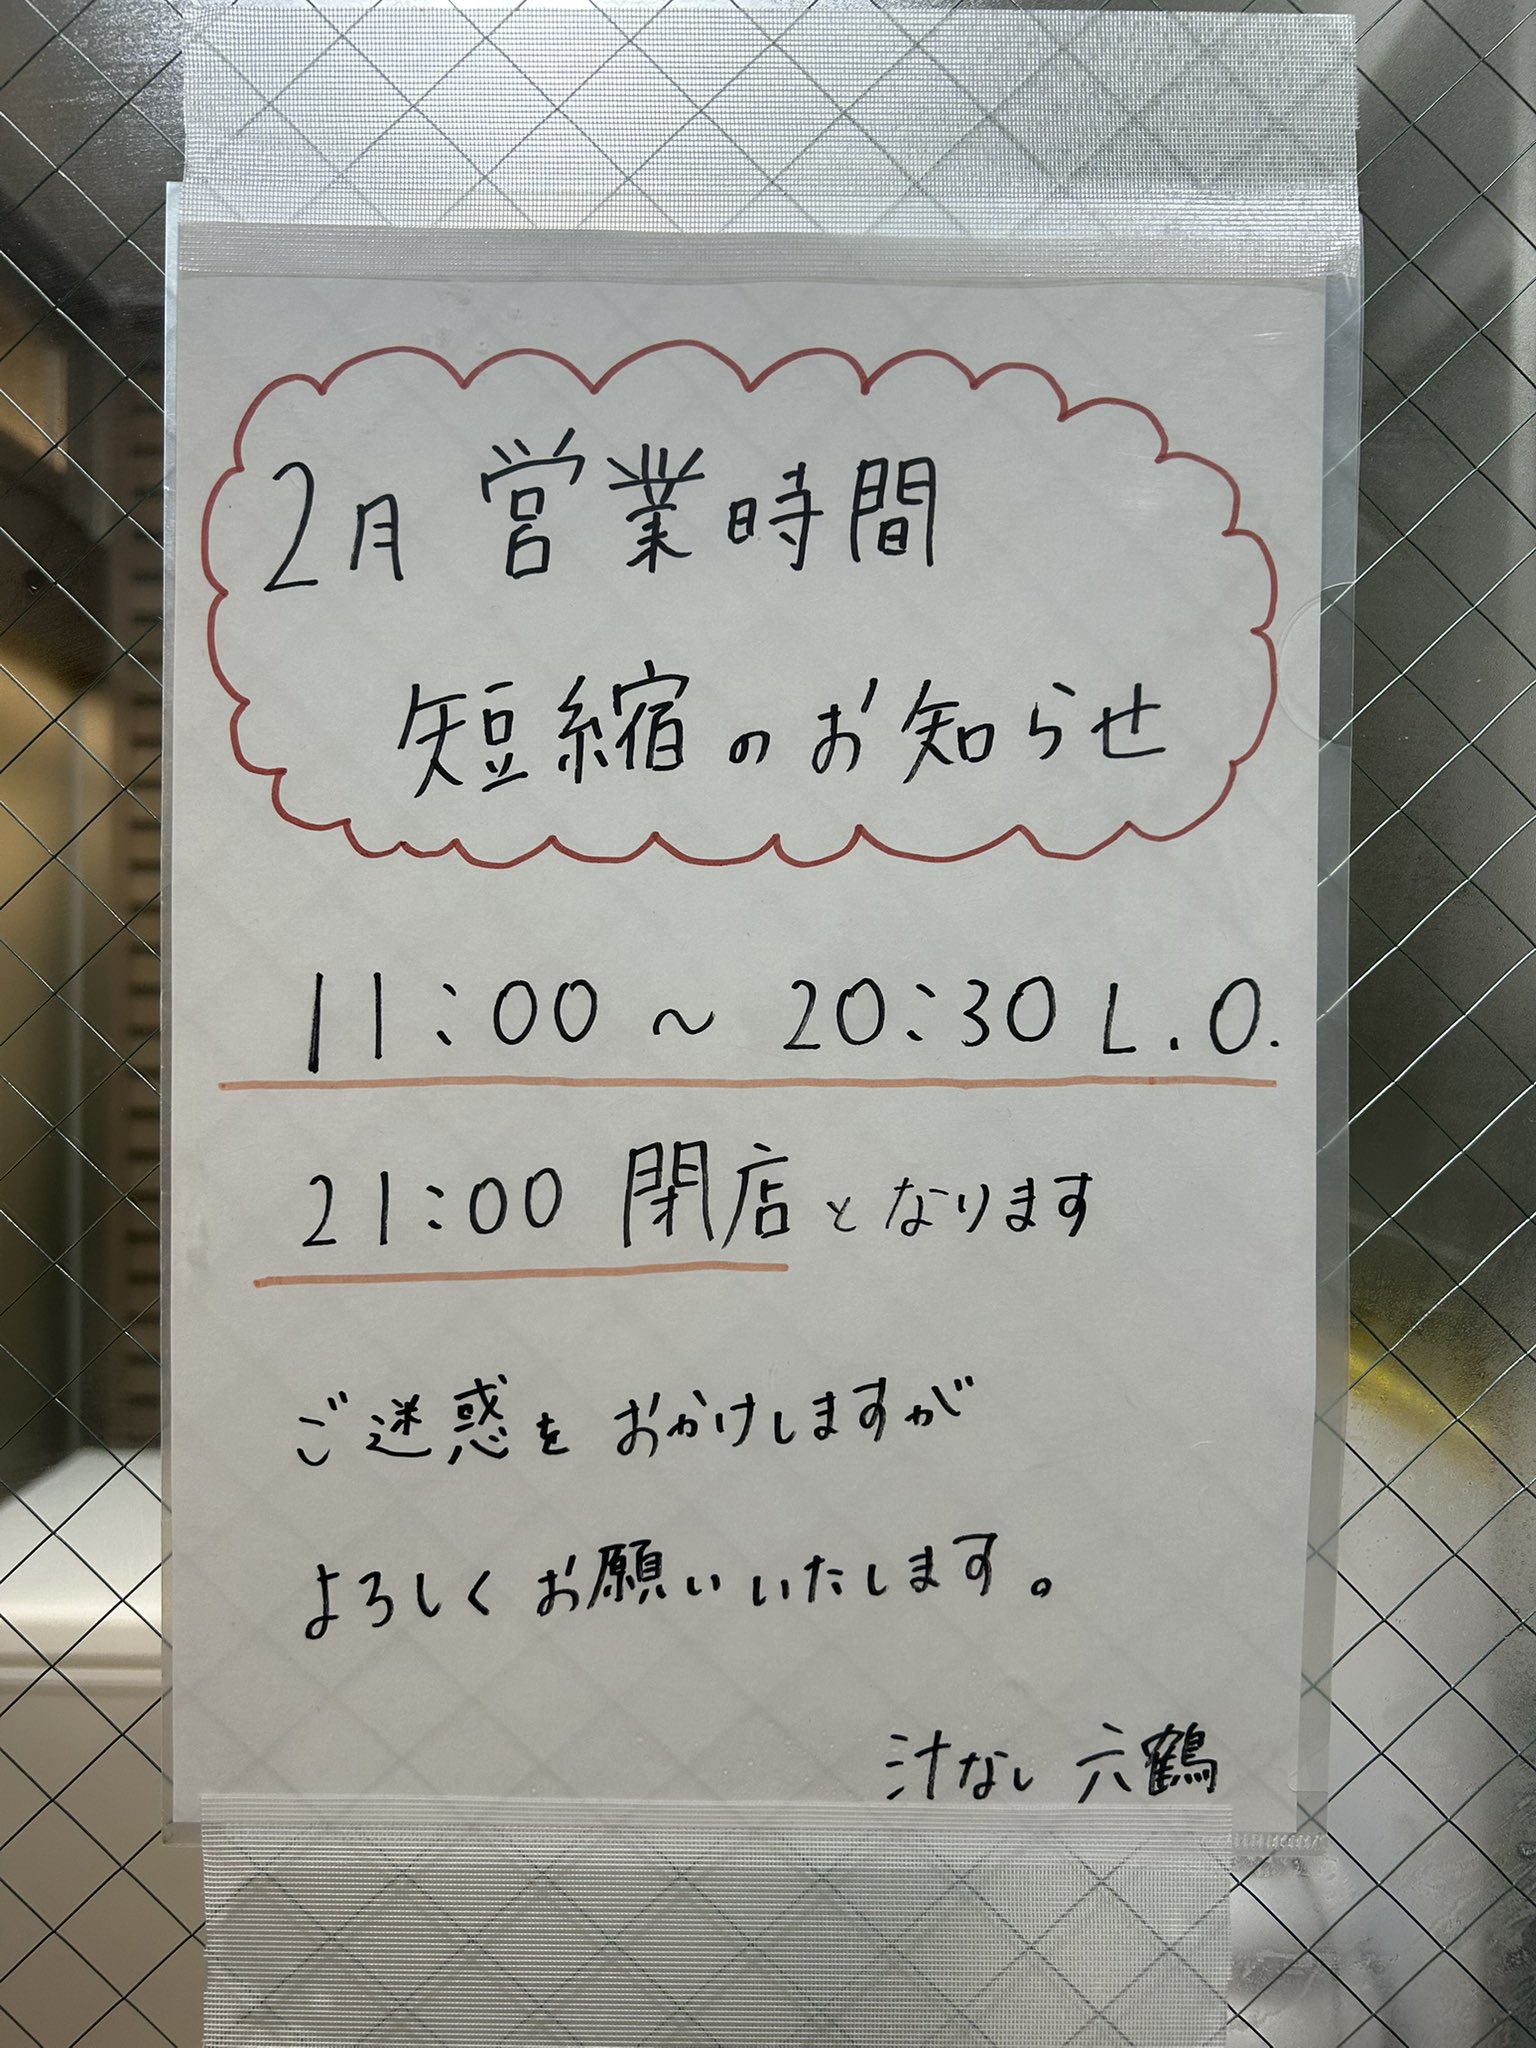 2月 営業時間
短縮のお知らせ
11:00 ~ 20:30 L.O.
21:00 閉店となります
ご迷惑をおかけしますが
よろしくお願いいたします。
汁なし 六鶴